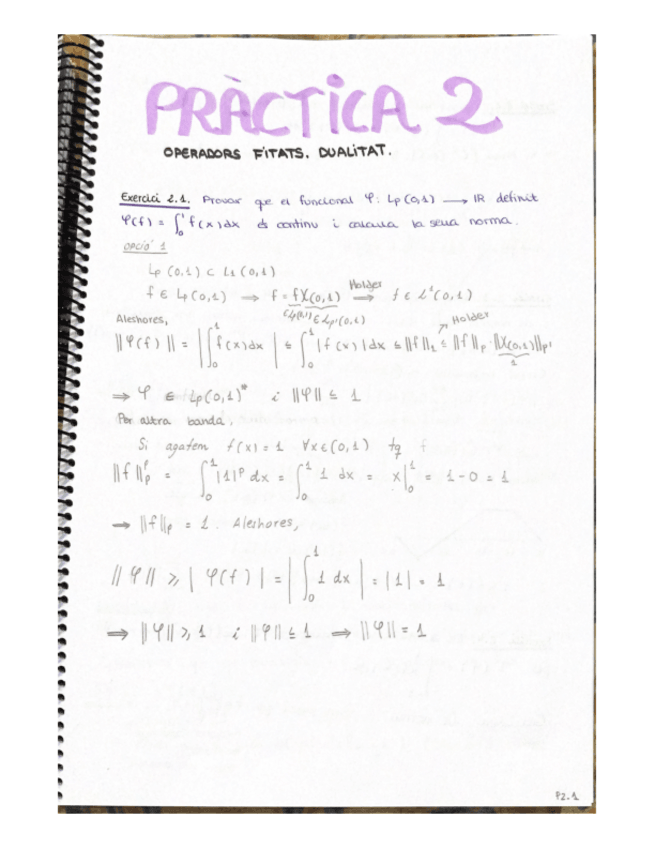 PRÀCTICA 2
OPERADORS FITATS. DUALITAT.
Exercici 2.1. Provar que el funcional φ: Lp(0,1) ⟶ IR definit
φ(f) = ∫₀¹ f(x)dx és continu i calcula la seua norma.
OPCIÓ 1
Lp(0,1) ⊂ L1(0,1)
f ∈ Lp(0,1) ⟹ f = fχ(0,1) ⟹ f ∈ L¹(0,1)
Holder
∈Lp(0,1) ∈ Lp'(0,1)
Aleshores,
Holder
||φ(f)|| = |∫₀¹ f(x)dx| ≤ ∫₀¹ |f(x)|dx ≤ ||f||₁ ≤ ||f||p · ||χ(0,1)||p'
1
⟹ φ ∈ Lp(0,1)* i ||φ|| ≤ 1
Por altra banda,
Si agafem f(x) = 1 ∀x∈(0,1) tq f
||f||ₚᵖ = ∫₀¹ |1|ᵖ dx = ∫₀¹ 1 dx = x|₀¹ = 1 - 0 = 1
⟹ ||f||p = 1. Aleshores,
||φ|| ≥ |φ(f)| = |∫₀¹ 1 dx| = |1| = 1
⟹ ||φ|| ≥ 1 i ||φ|| ≤ 1 ⟹ ||φ|| = 1
P2.1